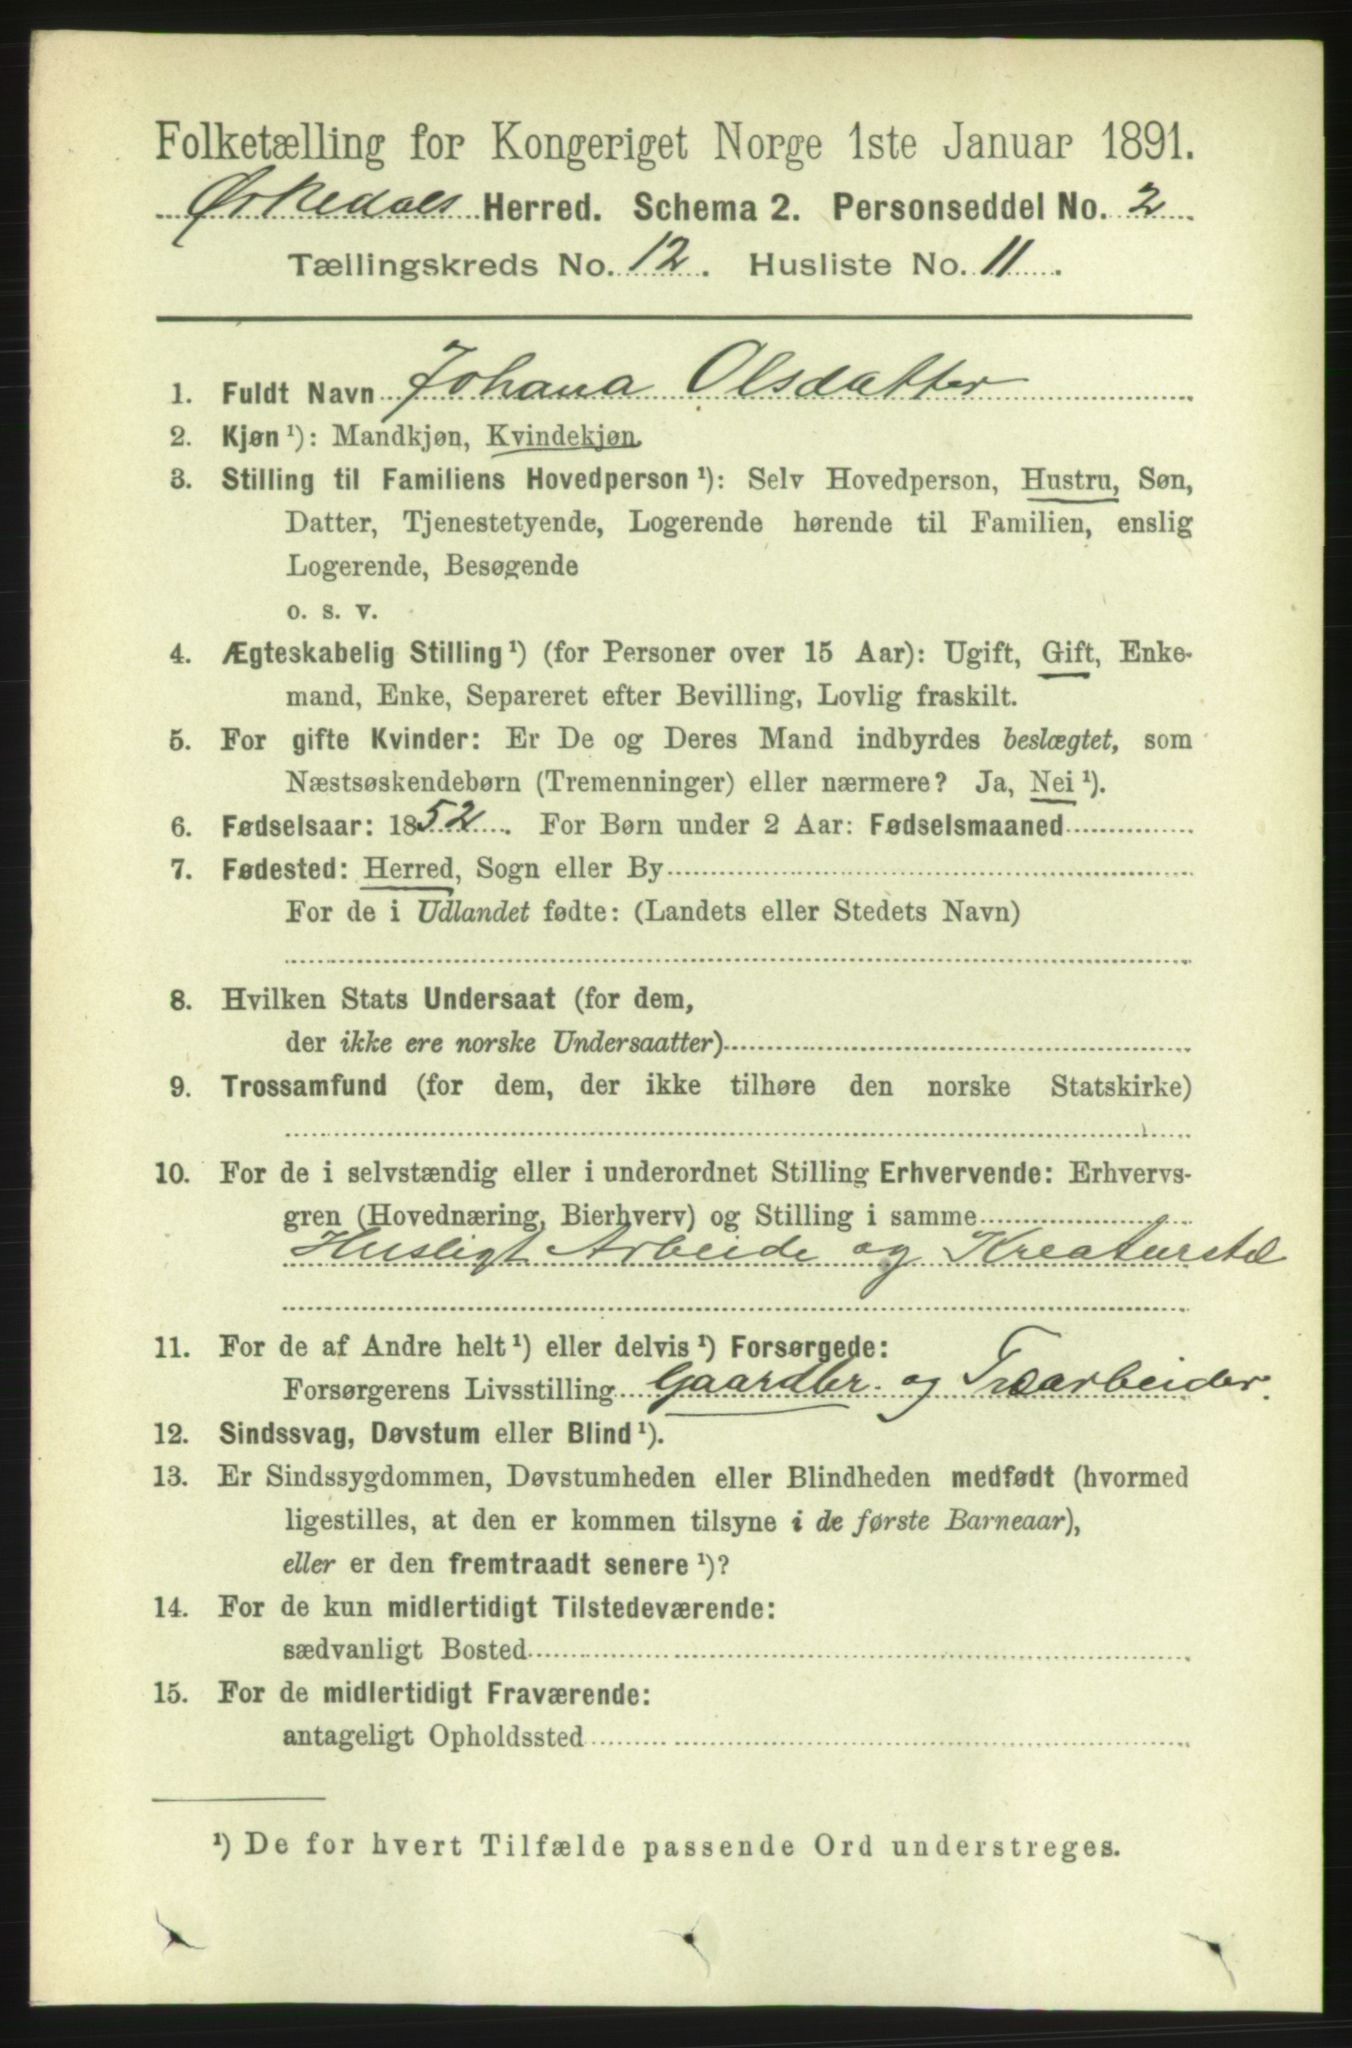 Folketælling for Kongeriget Norge 1ste Januar 1891.
Ørkedals Herred. Schema 2. Personseddel No. 2
Tællingskreds No. 12. Husliste No. 11.
1. Fuldt Navn Johana Olsdatter
2. Kjøn ¹): Mandkjøn, Kvindekjøn.
3. Stilling til Familiens Hovedperson ¹): Selv Hovedperson, Hustru, Søn,
Datter, Tjenestetyende, Logerende hørende til Familien, enslig
Logerende, Besøgende
o. s. v.
4. Ægteskabelig Stilling ¹) (for Personer over 15 Aar): Ugift, Gift, Enke-
mand, Enke, Separeret efter Bevilling, Lovlig fraskilt.
5. For gifte Kvinder: Er De og Deres Mand indbyrdes beslægtet, som
Næstsøskendebørn (Tremenninger) eller nærmere? Ja, Nei ¹).
6. Fødselsaar: 1852. For Børn under 2 Aar: Fødselsmaaned
7. Fødested: Herred, Sogn eller By
For de i Udlandet fødte: (Landets eller Stedets Navn)
8. Hvilken Stats Undersaat (for dem,
der ikke ere norske Undersaatter)
9. Trossamfund (for dem, der ikke tilhøre den norske Statskirke)
10. For de i selvstændig eller i underordnet Stilling Erhvervende: Erhvervs-
gren (Hovednæring, Bierhverv) og Stilling i samme
Husligt Arbeide og Kreaturstel
11. For de af Andre helt ¹) eller delvis ¹) Forsørgede:
Forsørgerens Livsstilling Gaardbr. og Træarbeider.
12. Sindssvag, Døvstum eller Blind ¹).
13. Er Sindssygdommen, Døvstumheden eller Blindheden medfødt (hvormed
ligestilles, at den er kommen tilsyne i de første Barneaar),
eller er den fremtraadt senere ¹)?
14. For de kun midlertidigt Tilstedeværende:
sædvanligt Bosted
15. For de midlertidigt Fraværende:
antageligt Opholdssted
¹) De for hvert Tilfælde passende Ord understreges.